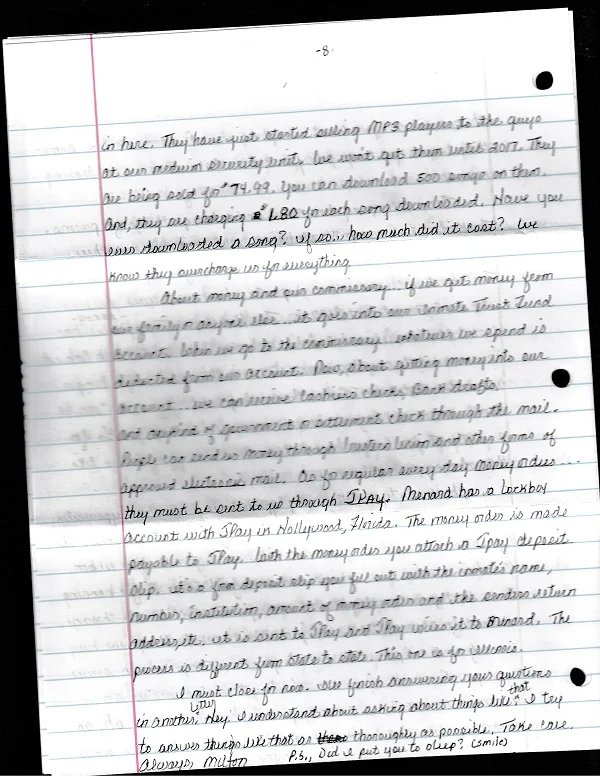 -8-
in here. They have just started selling MP3 players to the guys
at our medium security unit. We won't get them until 2017. They
are being sold for $74.99. You can download 500 songs on them.
And, they are charging $1.80 for each song downloaded. Have you
ever downloaded a song? If so.. how much did it cost? We
know they overcharge us for everything
About money and our commissary... if we get money from
our family or anyone else.. it goes into our Inmate Trust Fund
Account. When we go to the commissary.. whatever we spend is
deducted from our account. Now, about getting money into our
account... we can receive Cashiers checks, Bank drafts
and anykind of government or settlement check through the mail.
People can send us money through Western Union and other forms of
approved electronic mail. As for regular every day money orders....
they must be sent to us through JPAY. Menard has a lockbox
account with JPay in Hollywood, Florida. The money order is made
payable to JPay. With the money order you attach a Jpay deposit
slip. It's a form deposit slip you fill out with the inmate's name,
number, institution, amount of money order and the senders return
address, etc. It is sent to JPay and JPay wires it to Menard. The
process is different from state to state. This one is for Illinois.
I must close for now. Will finish answering your questions
in another letter. Hey, I understand about asking about things like that. I try
to answer things like that as thoroughly as possible. Take care.
Always, Milton P.S., Did I put you to sleep? (smile)